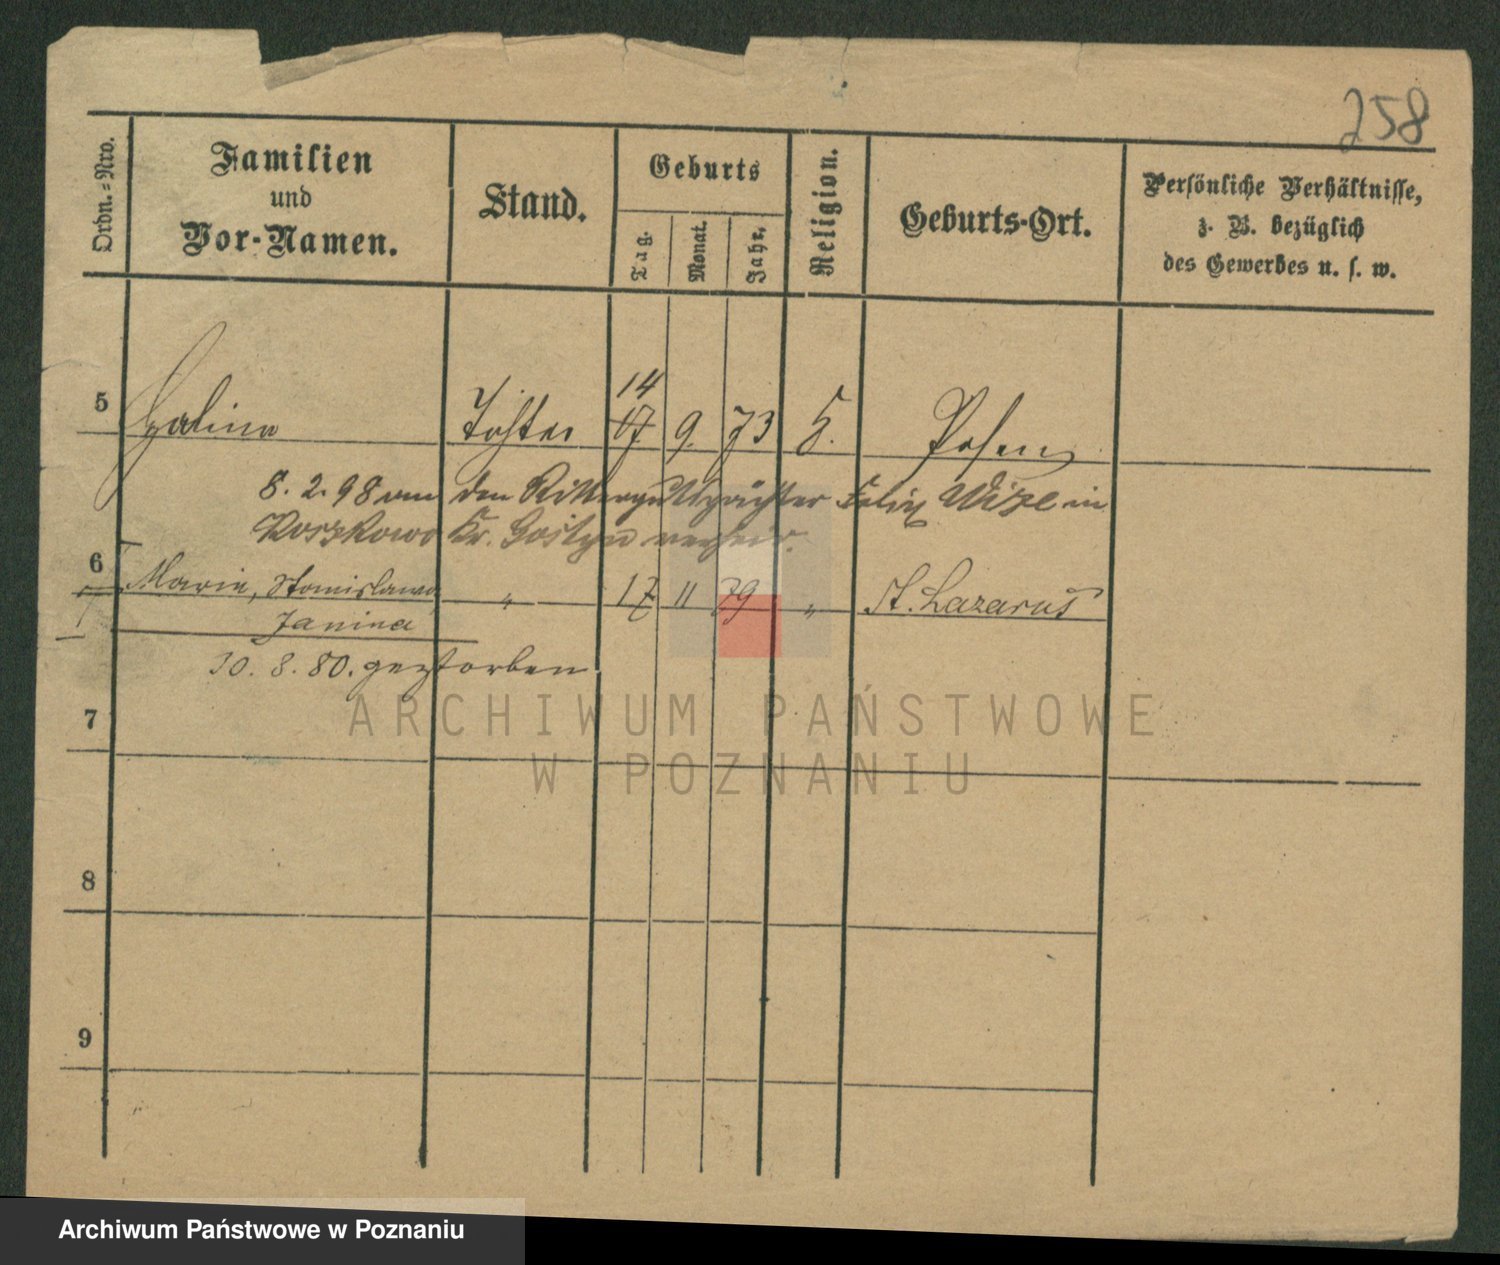 258
Ordn.-Nro.
Familien
und
Vor-Namen.
Stand.
Geburts
Tag.
Monat.
Jahr.
Religion.
Geburts-Ort.
Persönliche Verhältnisse,
z. B. bezüglich
des Gewerbes u. s. w.
14
5 Halina Tochter 17 9. 73 k. Posen
8. 2. 98 an den Rittergutspächter Felix Wize in
Koszkowo Kr. Gostyn verheir.
6 Maria, Stanislawa " 17 11 79 " St. Lazarus
Janina
30. 8. 80. gestorben
7
8
9
ARCHIWUM PAŃSTWOWE
W POZNANIU
Archiwum Państwowe w Poznaniu